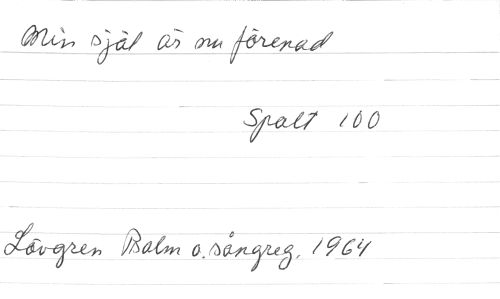 Min själ är nu förenad
Spalt 100
Lövgren Psalm o. sångreg. 1964